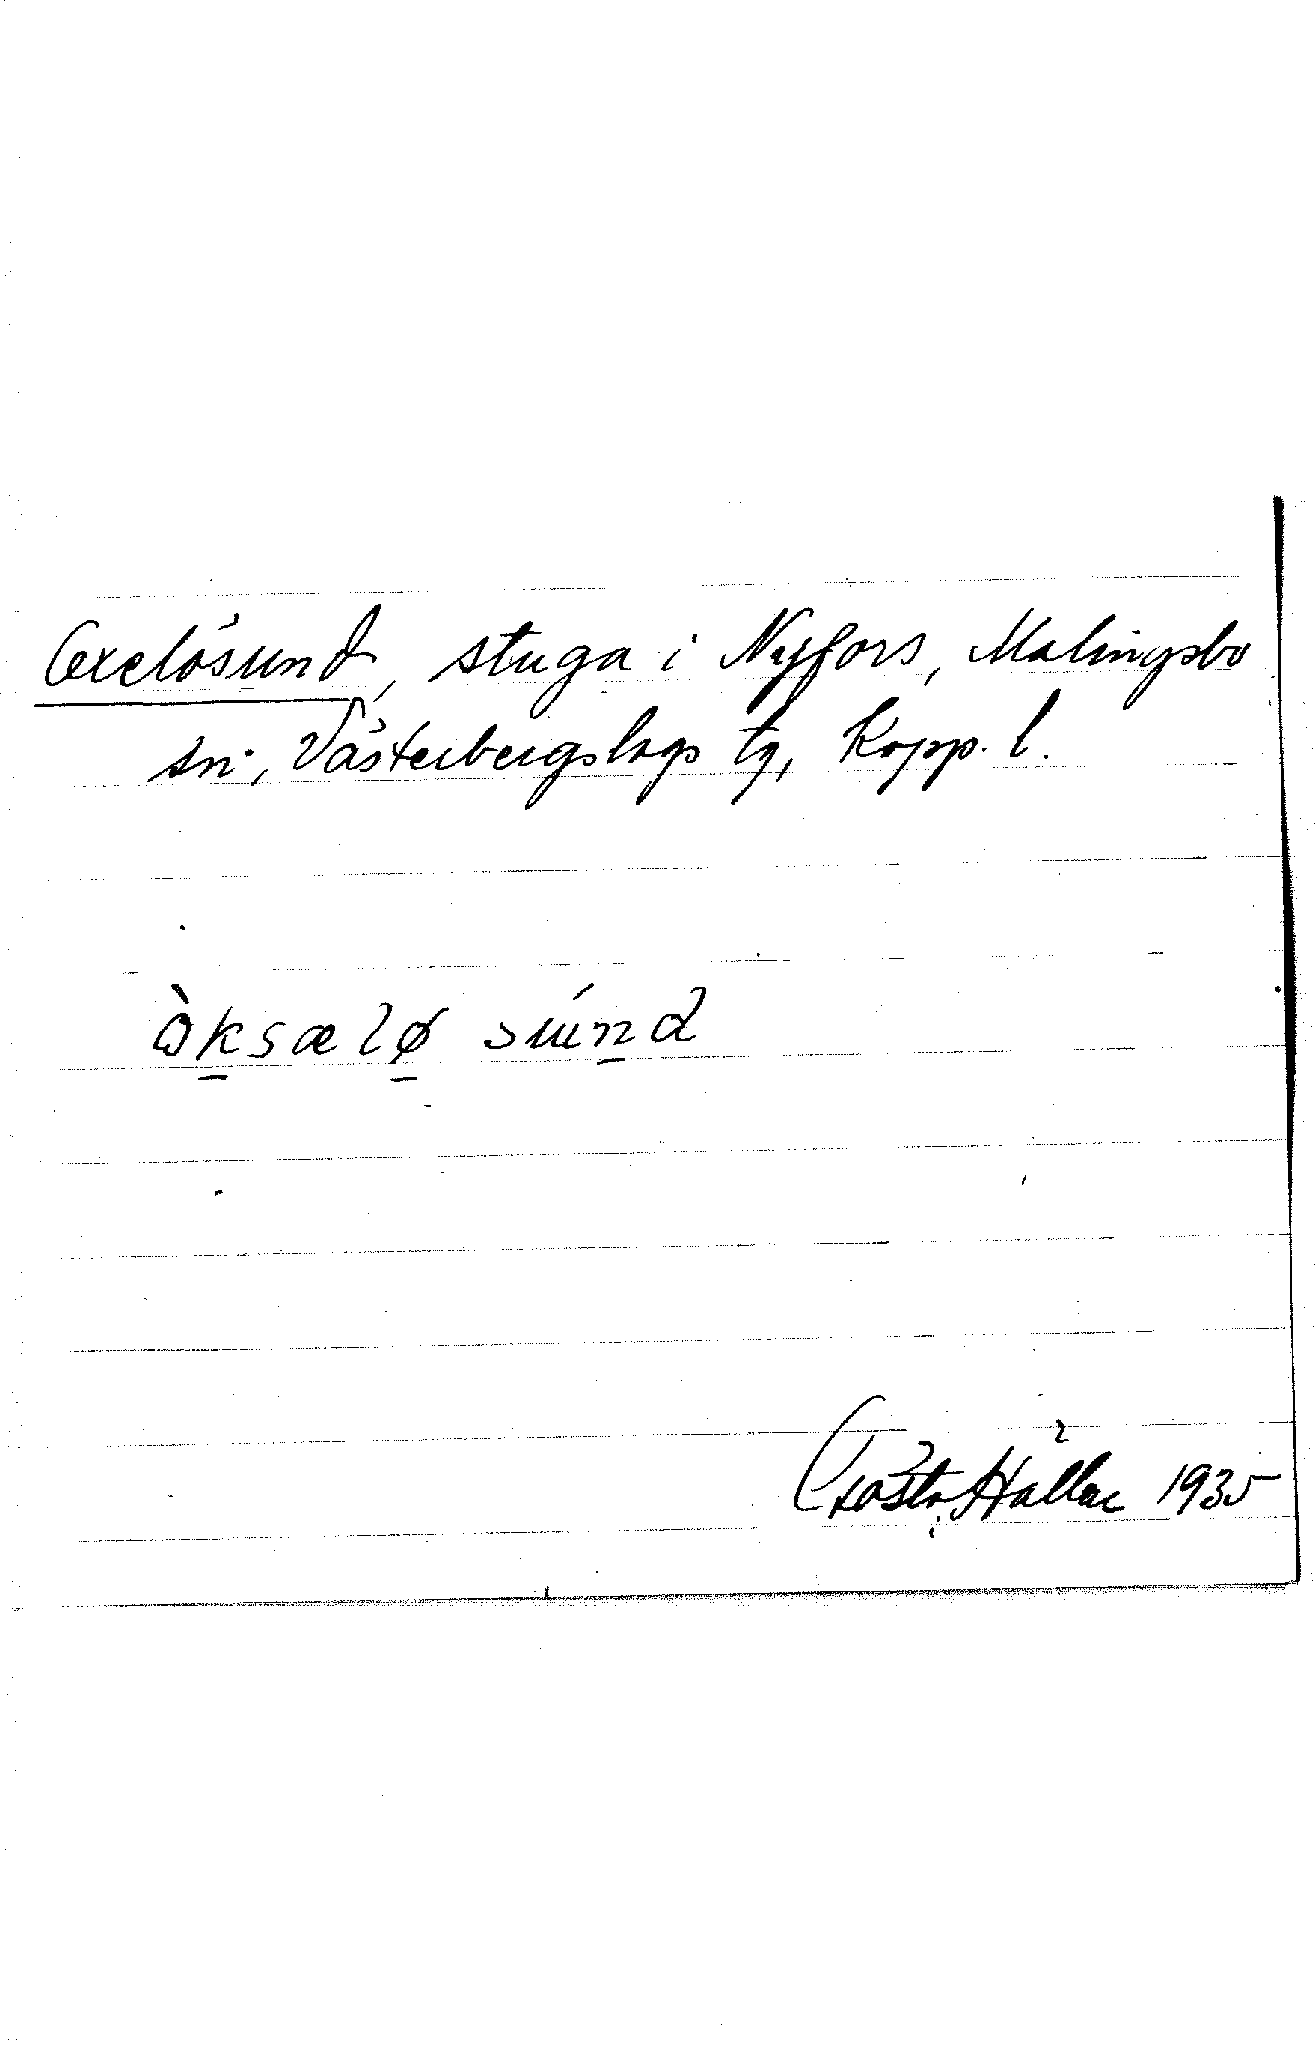 Oxelösund, stuga i Nyfors, Malingsbo
sn, Västerbergslags tg, Kopp. l.
òksælø súnd
Gösta Häller 1935